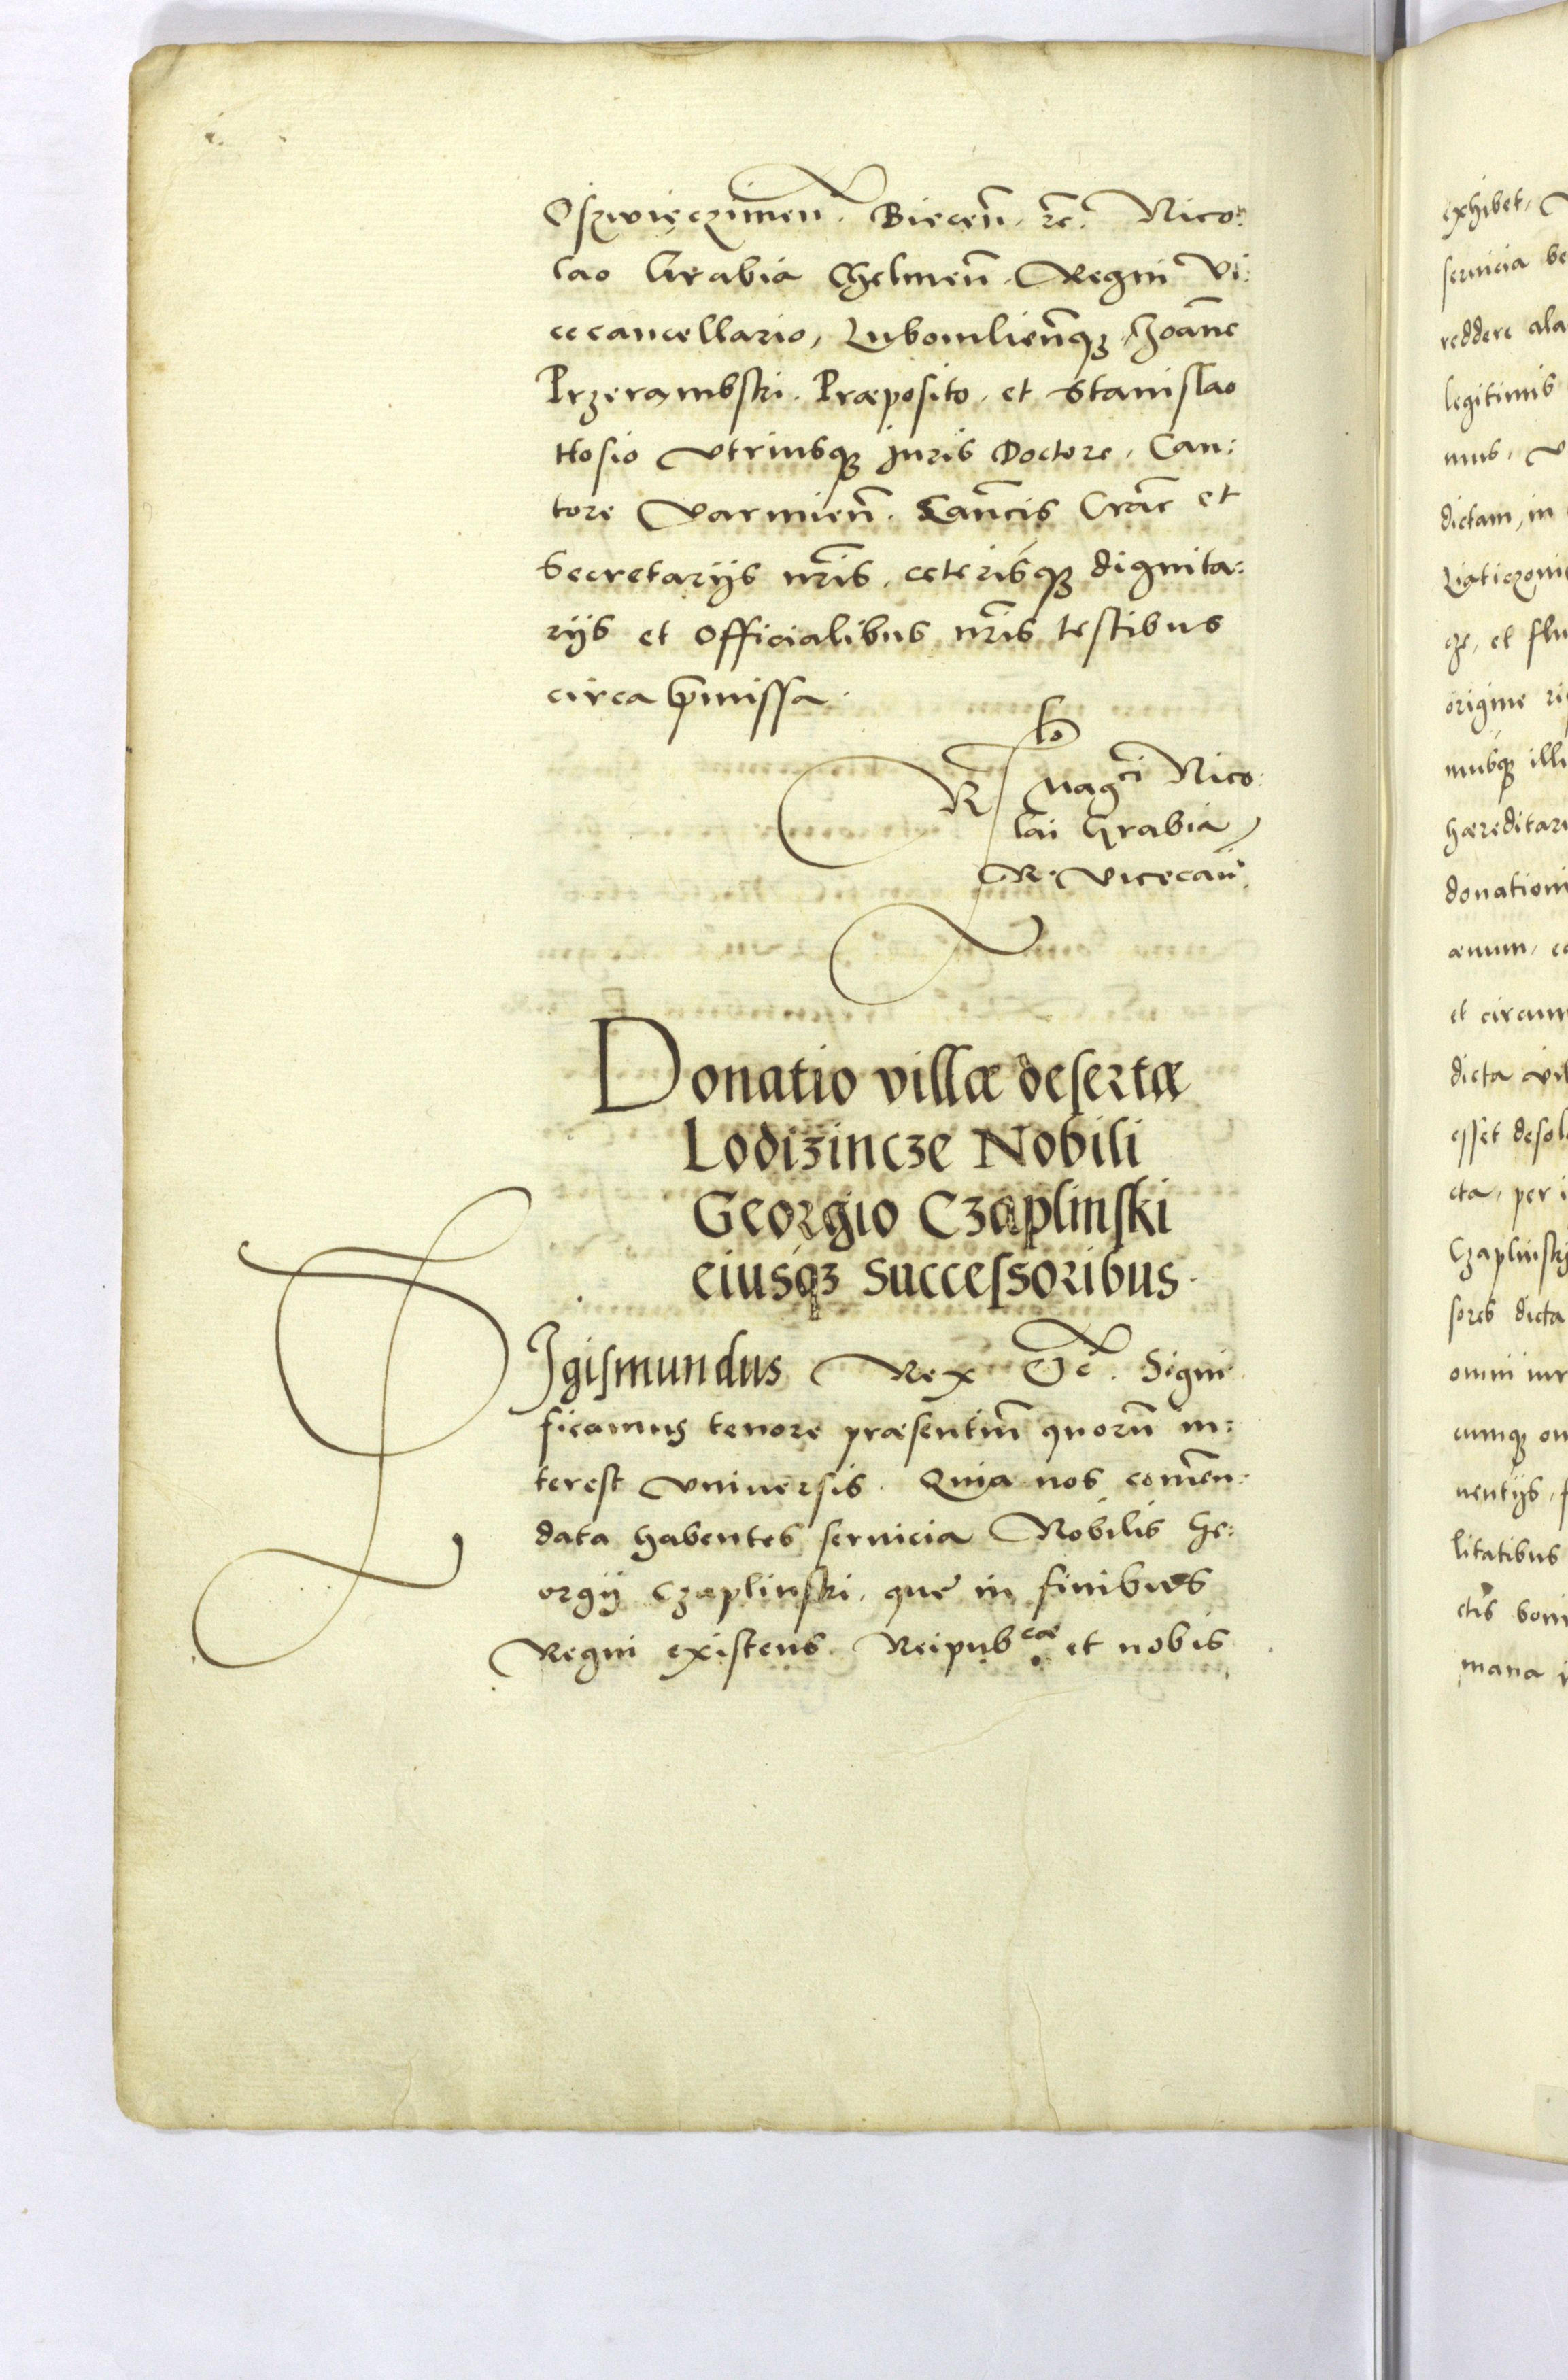 Oszwięczimeñ. Bieceñ. rc. Nico:
lao Grabia Chelmeñ. Regni Vi:
cecancellario, Lubomlieñqꝫ Joañe
Przerąmbski. Præposito. et Stanislao
Hosio Vtriusqꝫ Juris Doctore. Can:
tore Varmieñ. Cañcis Crac̃ et
Secretarijs nr̃is. ceterisqꝫ dignita:
rijs et Officialibus nr̃is testibus
circa p̃missa.
Rl̃o Mag^ci Nico:
lai Grabia,
R. Vicecañ.
Donatio villæ desertæ
Lodizincze Nobili
Georgio Czaplinski
eiusqꝫ Successoribus.
SIgismundus Rex Etc̃. Signi
ficamus tenore præsentiũ quorũ in:
terest Vniuersis. Quia nos com̃en:
data habentes seruicia Nobilis Ge:
orgij Czaplinski. que in finibus
Regni existens. Reipub^cæ et nobis
exhibet.
seruicia be
reddere ala
legitimis
mus. V
dictam, in
ge, et flu
origine ri
musqꝫ illi
hæreditari
donationi
æuum, co
et circum
dicta vil
esset desol
cta, per i
Czaplinski
sores dicta
omni iur
cumqꝫ om
uentijs, f
litatibus
ctis boni
mana i